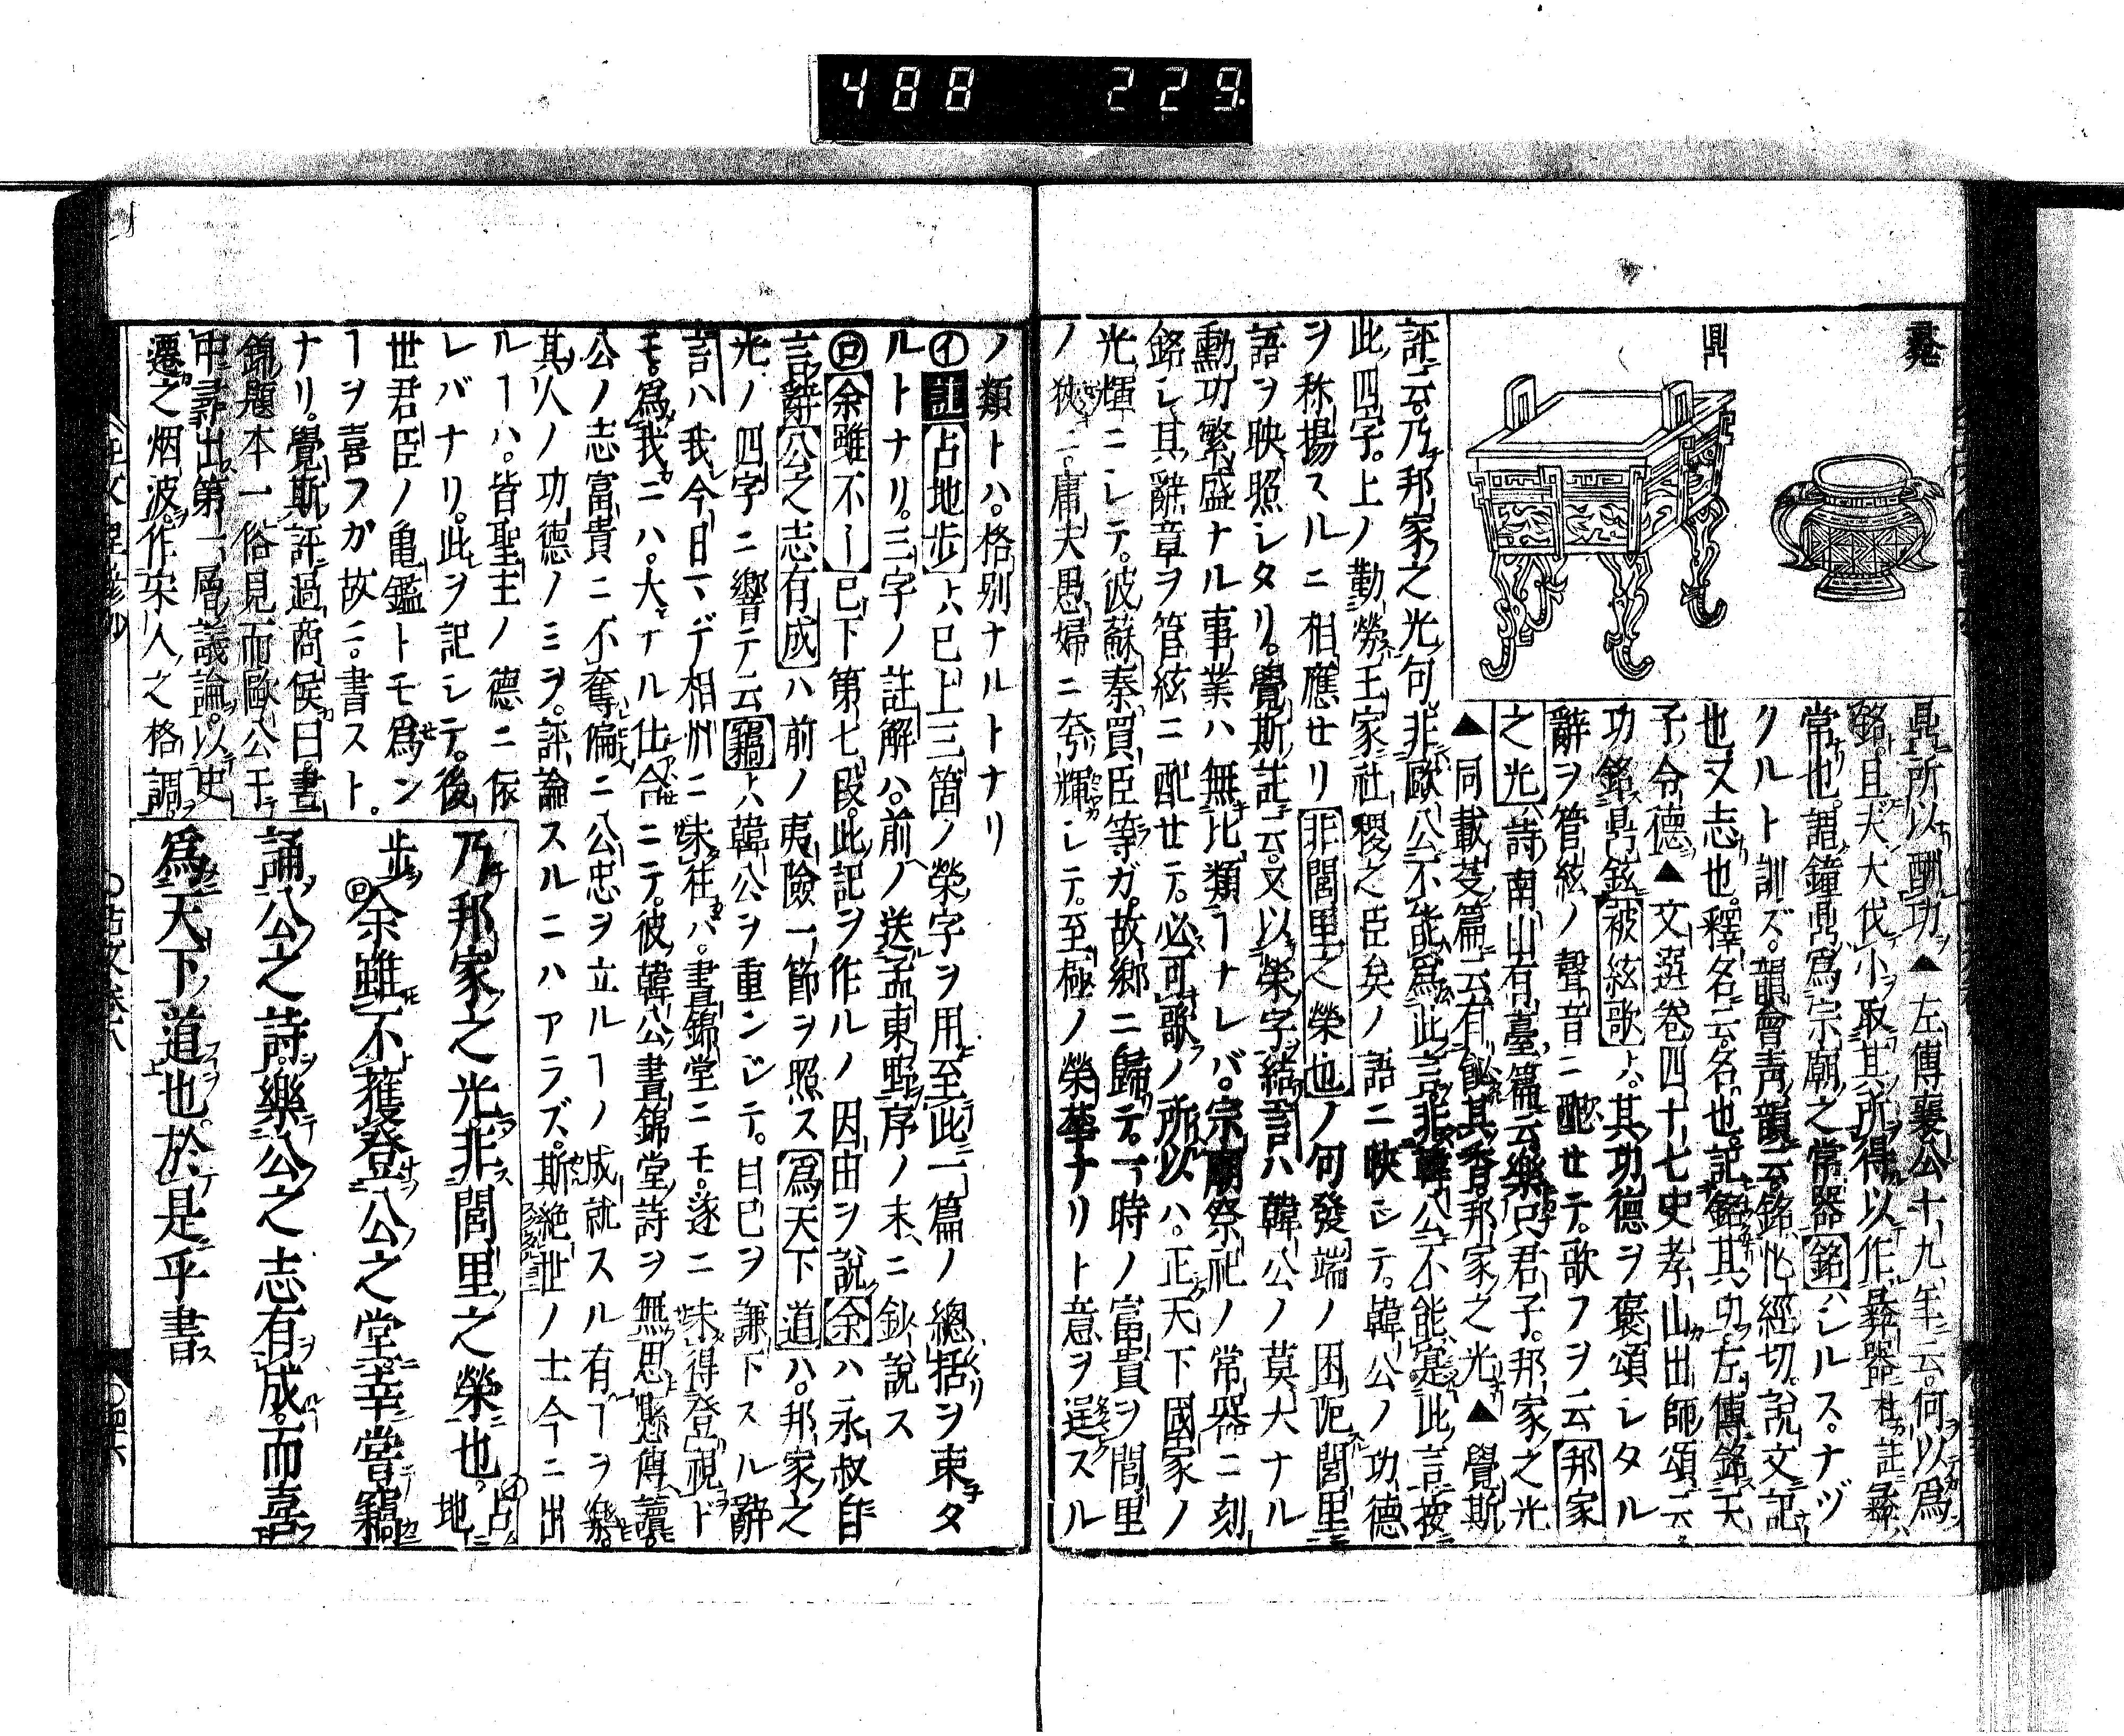 488 229.
彝
鼎
鼎所以酬功▲左傳襄公十九年云何以爲
銘且夫大伐小取其所得以作彝器杜註彝
常也謂鐘鼎爲宗廟之常器銘ハシルス。ナヅ
クルト訓ズ。韻會靑韻云銘忙經切說文記
也又志也。釋名云名也記銘其功左傳銘天
子令德▲文選卷四十七史孝山出師頌云
功銘鼎鉉被絃歌ト其功德ヲ褒頌シタル
辭ヲ管絃ノ聲音ニ配セテ。歌フヲ云邦家
之光詩南山有臺篇云樂只君子。邦家之光
▲同載芟篇云有飶其香邦家之光▲覺斯
評云乃邦家之光句非歐公不能爲此言非韓公不能寔此言按
此四字。上ノ勤勞王家社稷之臣矣ノ語ニ映シテ。韓公ノ功德
ヲ称揚スルニ相應セリ非閭里之榮也ノ句發端ノ困阨閭里
語ヲ映照シタリ。覺斯註云又以榮字結言ハ韓公ノ莫大ナル
勳功繁盛ナル事業ハ無比類ヿナレバ。宗廟祭祀ノ常器ニ刻
銘シ其辭章ヲ管絃ニ配セテ。必可歌ノ所以ハ。正天下國家ノ
光輝ニシテ。彼蘇秦買臣等ガ。故鄉ニ歸テ。一時ノ富貴ヲ閭里
ノ狹ニ。庸夫愚婦ニ夸輝シテ。至極ノ榮華ナリト意ヲ逞スル
ノ類トハ。格別ナルトナリ
㋑註占地步ト八已上三箇ノ榮字ヲ用至此一篇ノ總括ヲ束タ
ルトナリ。三字ノ註解ハ。前ノ送孟東野序ノ末ニ鈔說ス
㋺余雖不ー已下第七段。此記ヲ作ルノ因由ヲ說余ハ永叔自
言辭公之志有成ハ前ノ夷險一節ヲ照ス爲天下道ハ。邦家之
光ノ四字ニ響テ云竊ト八韓公ヲ重ンジテ。自己ヲ謙下スル辭
言ハ我今日マデ相州ニ未往バ。晝錦堂ニモ。逐ニ未得登視ト
モ。爲我ニハ。大ナル仕合ニテ。彼韓公晝錦堂詩ヲ無思懸傳讀。
公ノ志富貴ニ不奪偏ニ公忠ヲ立ルヿノ成就スル有ヿヲ樂。
其人ノ功德ノミヲ。評論スルニハアラズ。斯絶世ノ士今ニ出
ルヿハ。皆聖主ノ德ニ依
レバナリ。此ヲ記シテ。後
世君臣ノ亀鑑トモ爲ン
ヿヲ喜フカ故ニ。書スト。
ナリ。覺斯評過商侯曰晝
錦題本一俗見而歐公于
中尋出第一層議論。以史
遷之烟波。作宋人之格調
乃邦家之光非閭里之榮也。㋑占地
步㋺余雖不獲登公之堂幸嘗竊
誦公之詩樂公之志有成。而喜
爲天下道也。於是乎書